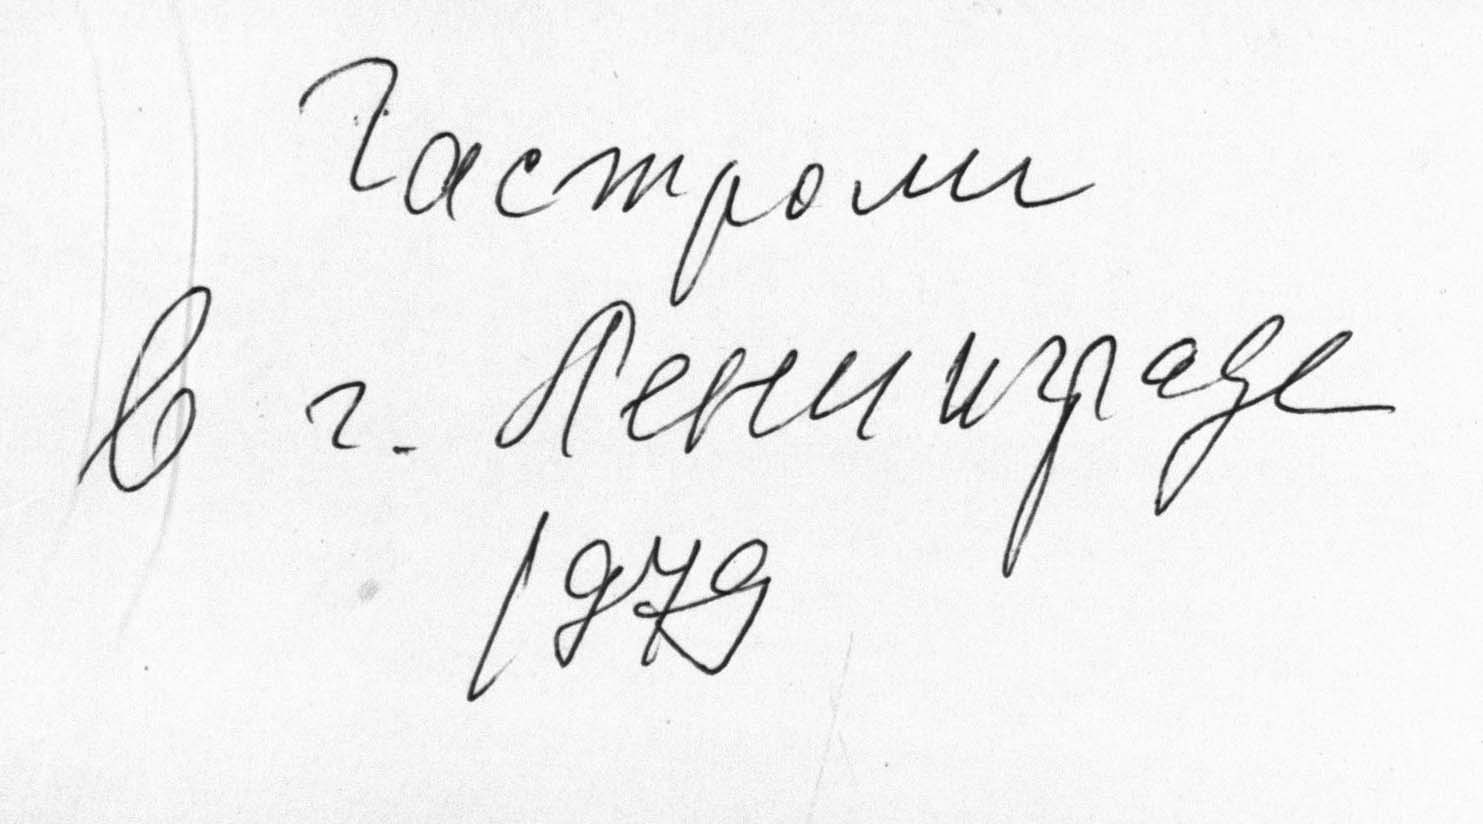 Гастроли
в г. Ленинграде
1979